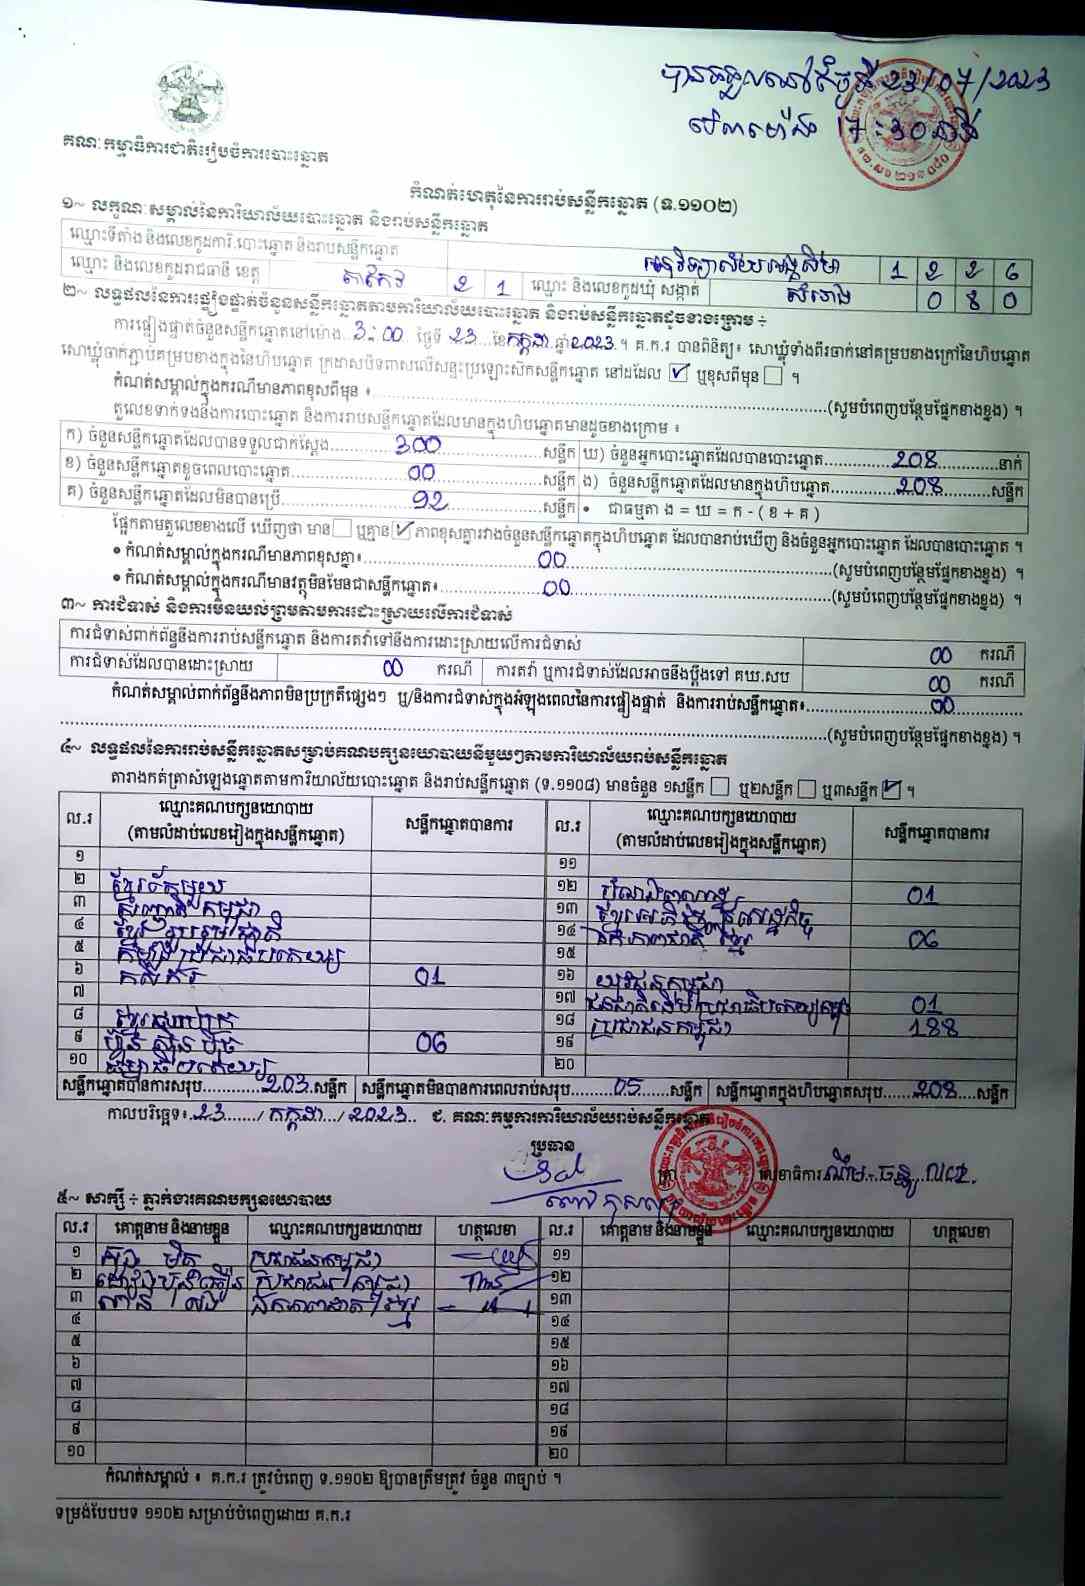 បានទទួលនៅថ្ងៃទី 23/07/2023
វេលាម៉ោង 17:30 នាទី
គណៈកម្មាធិការជាតិរៀបចំការបោះឆ្នោត
កំណត់ហេតុនៃការរាប់សន្លឹកឆ្នោត (ទ.១១០២)
១~ លក្ខណៈសម្គាល់នៃការិយាល័យបោះឆ្នោត និងរាប់សន្លឹកឆ្នោត
ឈ្មោះទីតាំង និងលេខកូដការិ.បោះឆ្នោត និងរាប់សន្លឹកឆ្នោត អនុវិទ្យាល័យអង្គសីមា 1 2 2 6
ឈ្មោះ និងលេខកូដរាជធានី ខេត្ត តាកែវ 2 1 ឈ្មោះ និងលេខកូដឃុំ សង្កាត់ សំរោង 0 8 0
២~ លទ្ធផលនៃការផ្ទៀងផ្ទាត់ចំនួនសន្លឹកឆ្នោតតាមការិយាល័យបោះឆ្នោត និងរាប់សន្លឹកឆ្នោតដូចខាងក្រោម ÷
ការផ្ទៀងផ្ទាត់ចំនួនសន្លឹកឆ្នោតនៅម៉ោង 3:00 ថ្ងៃទី 23 ខែ កក្កដា ឆ្នាំ 2023 ។ គ.ក.រ បានពិនិត្យ៖ សោឃ្លុំទាំងពីរចាក់នៅគម្របខាងក្រៅនៃហិបឆ្នោត
សោឃ្លុំចាក់ភ្ជាប់គម្របខាងក្នុងនៃហិបឆ្នោត ក្រដាសបិទពាសលើសន្ទះប្រឡោះសឹកសន្លឹកឆ្នោត នៅដដែល ✓ ឬខុសពីមុន ។
កំណត់សម្គាល់ក្នុងករណីមានភាពខុសពីមុន ៖ (សូមបំពេញបន្ថែមផ្នែកខាងខ្នង) ។
តួលេខទាក់ទងនឹងការបោះឆ្នោត និងការរាប់សន្លឹកឆ្នោតដែលមានក្នុងហិបឆ្នោតមានដូចខាងក្រោម ៖
ក) ចំនួនសន្លឹកឆ្នោតដែលបានទទួលជាក់ស្ដែង 300 សន្លឹក ឃ) ចំនួនអ្នកបោះឆ្នោតដែលបានបោះឆ្នោត 208 នាក់
ខ) ចំនួនសន្លឹកឆ្នោតខូចពេលបោះឆ្នោត 00 សន្លឹក ង) ចំនួនសន្លឹកឆ្នោតដែលមានក្នុងហិបឆ្នោត 208 សន្លឹក
គ) ចំនួនសន្លឹកឆ្នោតដែលមិនបានប្រើ 92 សន្លឹក • ជាធម្មតា ង = ឃ = ក - ( ខ + គ )
ផ្អែកតាមតួលេខខាងលើ ឃើញថា មាន ឬគ្មាន ✓ ភាពខុសគ្នារវាងចំនួនសន្លឹកឆ្នោតក្នុងហិបឆ្នោត ដែលបានរាប់ឃើញ និងចំនួនអ្នកបោះឆ្នោត ដែលបានបោះឆ្នោត ។
• កំណត់សម្គាល់ក្នុងករណីមានភាពខុសគ្នា៖ 00 (សូមបំពេញបន្ថែមផ្នែកខាងខ្នង) ។
• កំណត់សម្គាល់ក្នុងករណីមានវត្ថុមិនមែនជាសន្លឹកឆ្នោត៖ 00 (សូមបំពេញបន្ថែមផ្នែកខាងខ្នង) ។
៣~ ការជំទាស់ និងការមិនយល់ព្រមតាមការដោះស្រាយលើការជំទាស់
ការជំទាស់ពាក់ព័ន្ធនឹងការរាប់សន្លឹកឆ្នោត និងការតវ៉ាទៅនឹងការដោះស្រាយលើការជំទាស់ 00 ករណី
ការជំទាស់ដែលបានដោះស្រាយ 00 ករណី ការតវ៉ា ឬការជំទាស់ដែលអាចនឹងប្ដឹងទៅ គឃ.សប 00 ករណី
កំណត់សម្គាល់ពាក់ព័ន្ធនឹងភាពមិនប្រក្រតីផ្សេងៗ ឬ/និងការជំទាស់ក្នុងអំឡុងពេលនៃការផ្ទៀងផ្ទាត់ និងការរាប់សន្លឹកឆ្នោត៖ 00
(សូមបំពេញបន្ថែមផ្នែកខាងខ្នង) ។
៤~ លទ្ធផលនៃការរាប់សន្លឹកឆ្នោតសម្រាប់គណបក្សនយោបាយនីមួយៗតាមការិយាល័យរាប់សន្លឹកឆ្នោត
តារាងកត់ត្រាសំឡេងឆ្នោតតាមការិយាល័យបោះឆ្នោត និងរាប់សន្លឹកឆ្នោត (ទ.១១០៨) មានចំនួន ១សន្លឹក ឬ២សន្លឹក ឬ៣សន្លឹក ✓ ។
ល.រ ឈ្មោះគណបក្សនយោបាយ (តាមលំដាប់លេខរៀងក្នុងសន្លឹកឆ្នោត) សន្លឹកឆ្នោតបានការ ល.រ ឈ្មោះគណបក្សនយោបាយ (តាមលំដាប់លេខរៀងក្នុងសន្លឹកឆ្នោត) សន្លឹកឆ្នោតបានការ
១ ១១
២ ខ្មែរតែមួយ ១២ 01
៣ កម្ពុជា ១៣ ខ្មែរអភិវឌ្ឍន៍សេដ្ឋកិច្ច
៤ ខ្មែររួបរួមជាតិ ១៤ ឯកភាពជាតិខ្មែរ 06
៥ កម្លាំងប្រជាធិបតេយ្យ ១៥
៦ កសិករ 01 ១៦ យុវជនកម្ពុជា
៧ ១៧ ជនជាតិដើមប្រជាធិបតេយ្យកម្ពុជា 01
៨ ១៨ ប្រជាជនកម្ពុជា 188
៩ ហ៊្វុនស៊ិនប៉ិច 06 ១៩
១០ ធម្មាធិបតេយ្យ ២០
សន្លឹកឆ្នោតបានការសរុប 203 សន្លឹក សន្លឹកឆ្នោតមិនបានការពេលរាប់សរុប 05 សន្លឹក សន្លឹកឆ្នោតក្នុងហិបឆ្នោតសរុប 208 សន្លឹក
កាលបរិច្ឆេទ៖ 23 / កក្កដា / 2023 ជ. គណៈកម្មការការិយាល័យរាប់សន្លឹកឆ្នោត
ប្រធាន
ត្រា លេខាធិការ
៥~ សាក្សី ÷ ភ្នាក់ងារគណបក្សនយោបាយ
ល.រ គោត្តនាម និងនាមខ្លួន ឈ្មោះគណបក្សនយោបាយ ហត្ថលេខា ល.រ គោត្តនាម និងនាមខ្លួន ឈ្មោះគណបក្សនយោបាយ ហត្ថលេខា
១ ប្រជាជនកម្ពុជា ១១
២ ១២
៣ ឯកភាពជាតិខ្មែរ ១៣
៤ ១៤
៥ ១៥
៦ ១៦
៧ ១៧
៨ ១៨
៩ ១៩
១០ ២០
កំណត់សម្គាល់ ៖ គ.ក.រ ត្រូវបំពេញ ទ.១១០២ ឱ្យបានត្រឹមត្រូវ ចំនួន ៣ច្បាប់ ។
ទម្រង់បែបបទ ១១០២ សម្រាប់បំពេញដោយ គ.ក.រ